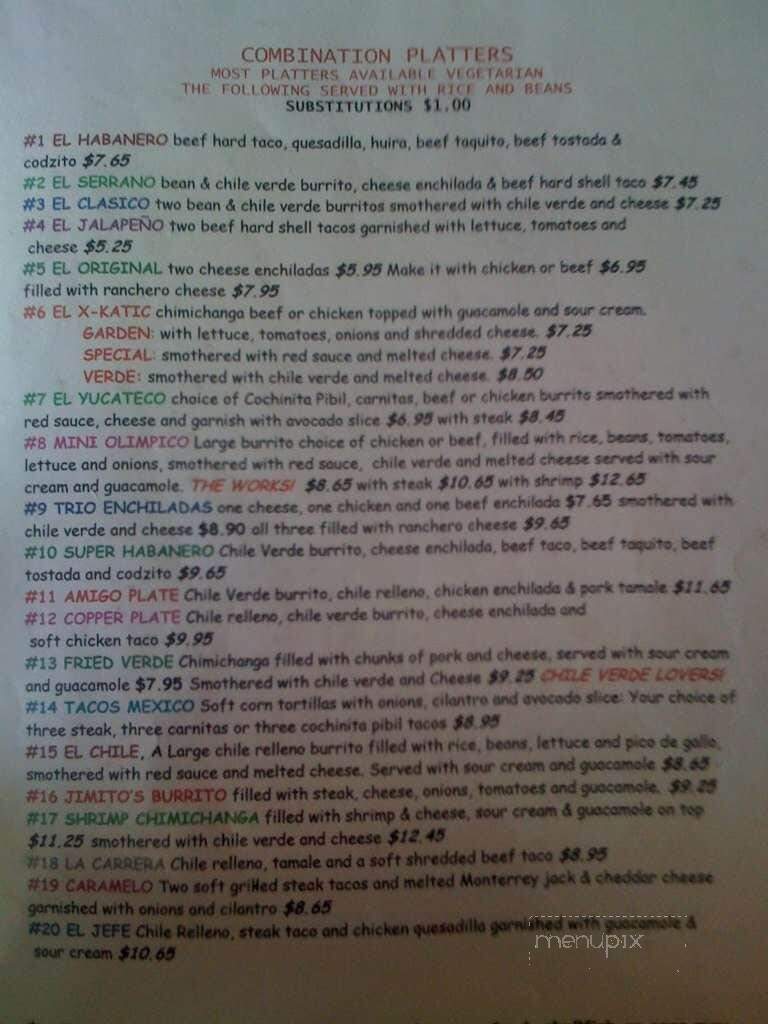 COMBINATION PLATTERS
MOST PLATTERS AVAILABLE VEGETARIAN
THE FOLLOWING SERVED WITH RICE AND BEANS
SUBSTITUTIONS $1.00
#1 EL HABANERO beef hard taco, quesadilla, huira, beef taquito, beef tostada &
codzito $7.65
#2 EL SERRANO bean & chile verde burrito, cheese enchilada & beef hard shell taco $7.45
#3 EL CLASICO two bean & chile verde burritos smothered with chile verde and cheese $7.25
#4 EL JALAPEÑO two beef hard shell tacos garnished with lettuce, tomatoes and
cheese $5.25
#5 EL ORIGINAL two cheese enchiladas $5.95 Make it with chicken or beef $6.95
filled with ranchero cheese $7.95
#6 EL X-KATIC chimichanga beef or chicken topped with guacamole and sour cream.
GARDEN: with lettuce, tomatoes, onions and shredded cheese. $7.25
SPECIAL: smothered with red sauce and melted cheese. $7.25
VERDE: smothered with chile verde and melted cheese. $8.50
#7 EL YUCATECO choice of Cochinita Pibil, carnitas, beef or chicken burrito smothered with
red sauce, cheese and garnish with avocado slice $6.95 with steak $8.45
#8 MINI OLIMPICO Large burrito choice of chicken or beef, filled with rice, beans, tomatoes,
lettuce and onions, smothered with red sauce, chile verde and melted cheese served with sour
cream and guacamole. THE WORKS! $8.65 with steak $10.65 with shrimp $12.65
#9 TRIO ENCHILADAS one cheese, one chicken and one beef enchilada $7.65 smothered with
chile verde and cheese $8.90 all three filled with ranchero cheese $9.65
#10 SUPER HABANERO Chile Verde burrito, cheese enchilada, beef taco, beef taquito, beef
tostada and codzito $9.65
#11 AMIGO PLATE Chile Verde burrito, chile relleno, chicken enchilada & pork tamale $11.65
#12 COPPER PLATE Chile relleno, chile verde burrito, cheese enchilada and
soft chicken taco $9.95
#13 FRIED VERDE Chimichanga filled with chunks of pork and cheese, served with sour cream
and guacamole $7.95 Smothered with chile verde and Cheese $9.25 CHILE VERDE LOVERS!
#14 TACOS MEXICO Soft corn tortillas with onions, cilantro and avocado slice: Your choice of
three steak, three carnitas or three cochinita pibil tacos $8.95
#15 EL CHILE, A Large chile relleno burrito filled with rice, beans, lettuce and pico de gallo,
smothered with red sauce and melted cheese. Served with sour cream and guacamole $8.65
#16 JIMITO'S BURRITO filled with steak, cheese, onions, tomatoes and guacamole. $9.25
#17 SHRIMP CHIMICHANGA filled with shrimp & cheese, sour cream & guacamole on top
$11.25 smothered with chile verde and cheese $12.45
#18 LA CARRERA Chile relleno, tamale and a soft shredded beef taco $8.95
#19 CARAMELO Two soft grilled steak tacos and melted Monterrey jack & cheddar cheese
garnished with onions and cilantro $8.65
#20 EL JEFE Chile Relleno, steak taco and chicken quesadilla garnished with guacamole &
sour cream $10.65
menupix